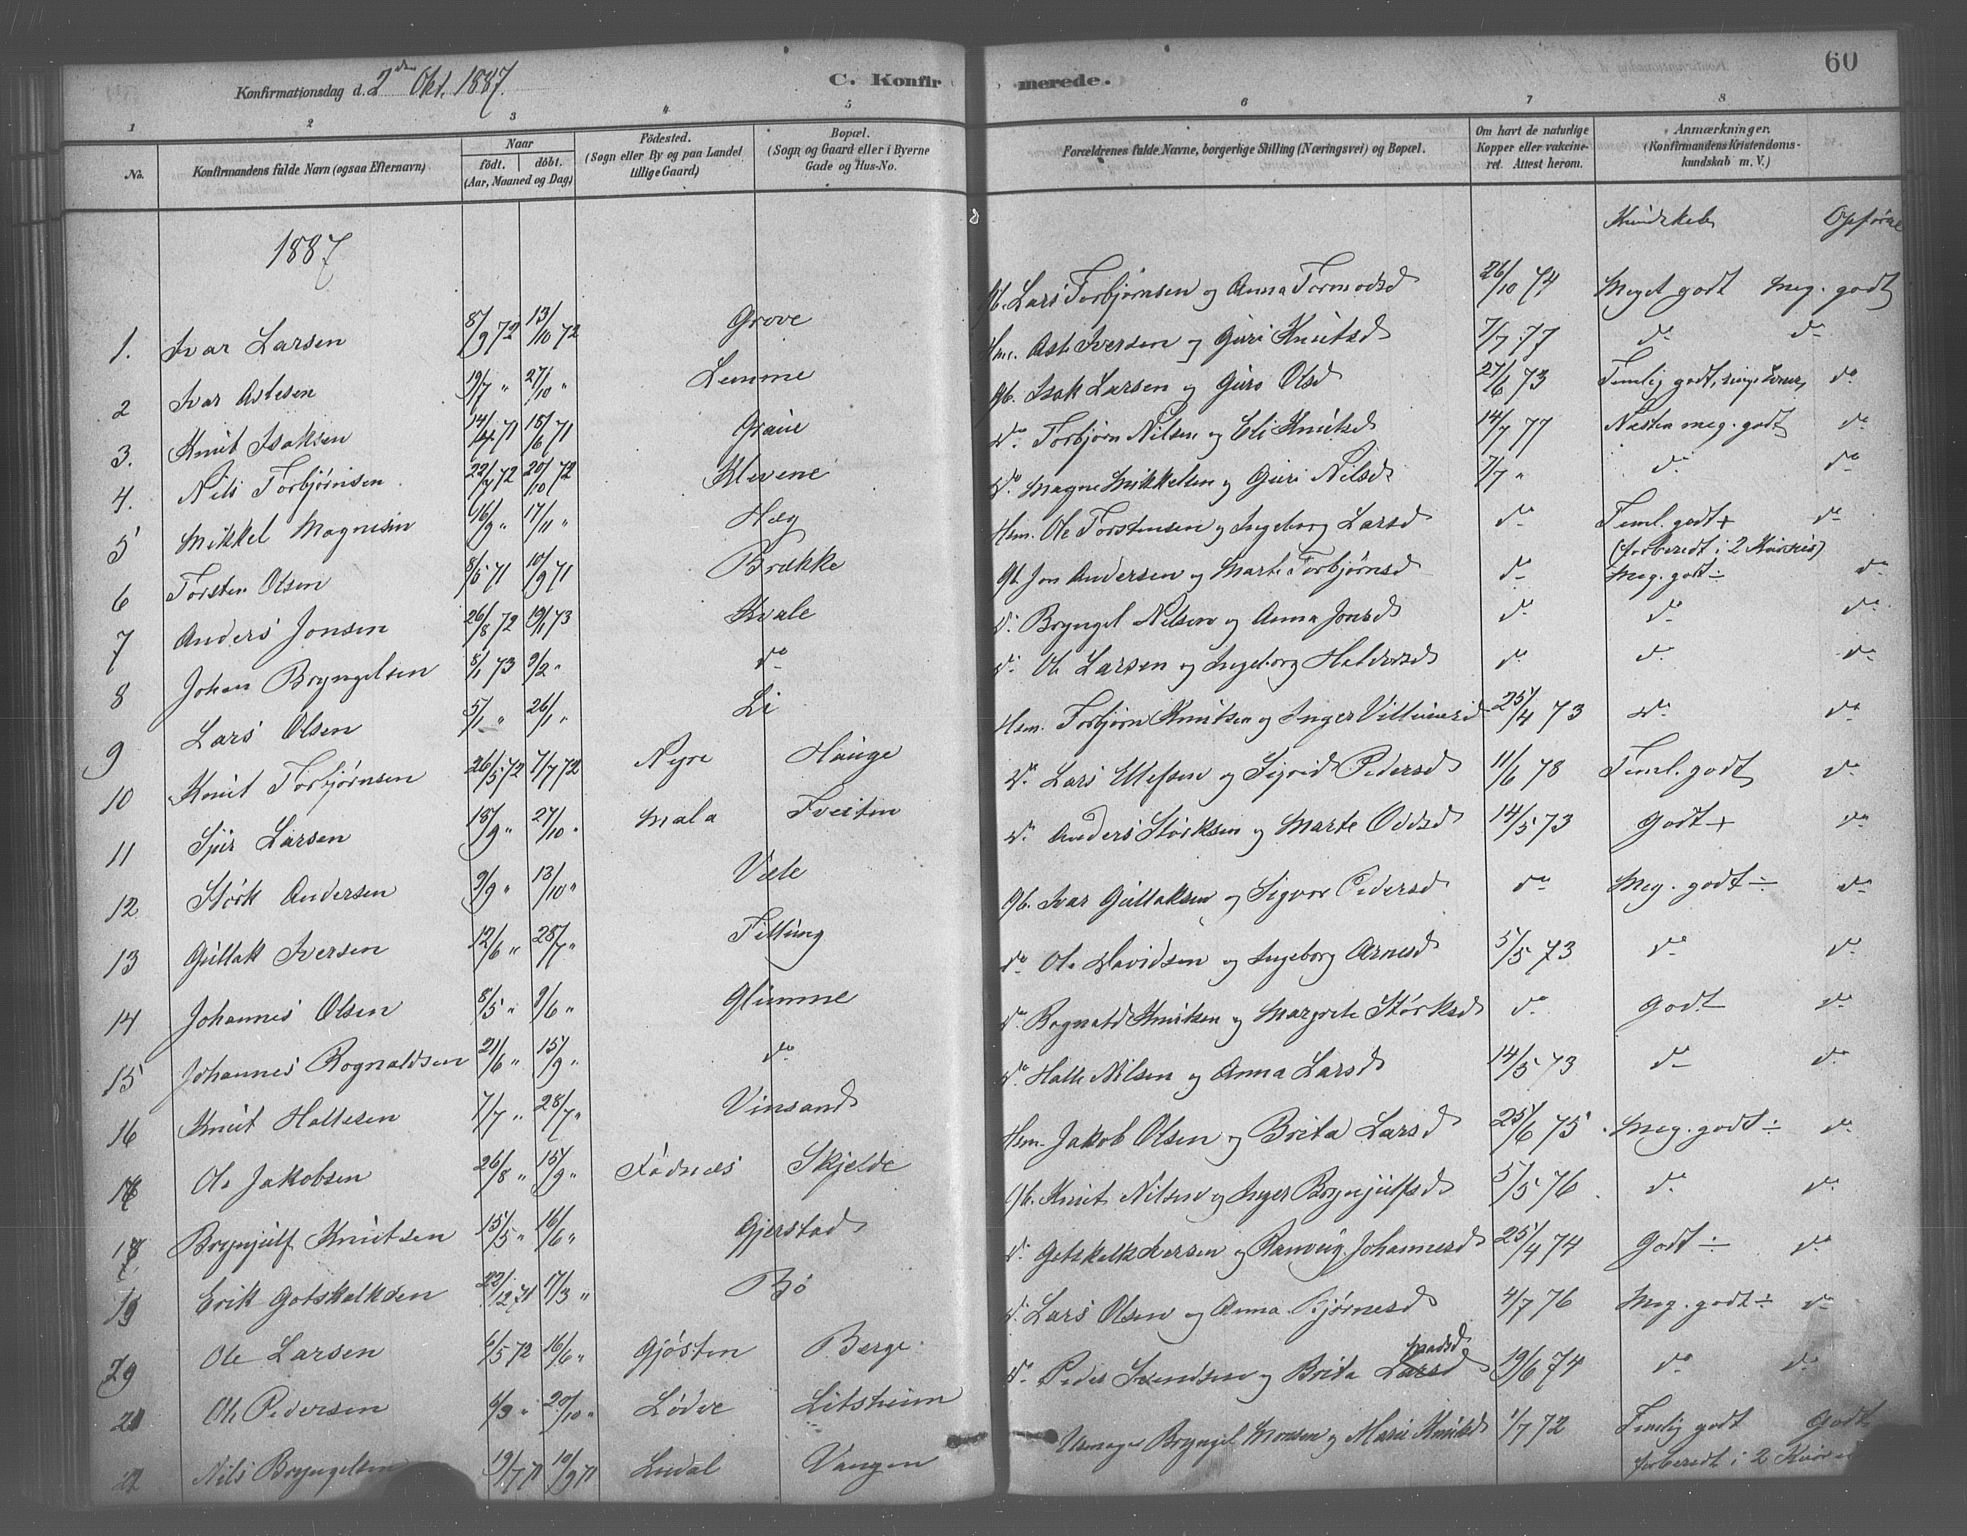 60
Konfirmationsdag d. 2den Okt. 1887.
C. Konfirmerede.
1 2 3 4 5 6 7 8
No.
Konfirmandens fulde Navn (ogsaa Efternavn)
Naar
födt. döbt.
(Aar, Maaned og Dag)
Födested.
(Sogn eller By og paa Landet
tillige Gaard)
Bopæl.
(Sogn og Gaard eller i Byerne
Gade og Hus-No.
Forældrenes fulde Navne, borgerlige Stilling (Næringsvei) og Bopæl.
Om havt de naturlige
Kopper eller vakcine-
ret Attest herom.
Anmærkninger.
(Konfirmandens Kristendoms-
kundskab m. V.)
Kundskab Opførsel
1887
1. Ivar Larsen 8/9 72 13/10 72 Grove Gb. Lars Torbjørnsen og Anna Tormodsd 26/10 74 Meget godt Meg. godt
2 Ivar Astesen 19/7 " 27/10 " Lemme Hm. Aste Iversen og Guri Knutsd 7/7 77 do do
3. Knut Isaksen 14/4 71 18/6 71 Graue Gb. Isak Larsen og Guro Olsd 27/6 73 Temlig godt, do
4. Nils Torbjørnsen 22/9 72 20/10 72 Klevene do Torbjørn Nilsen og Eli Knutsd 14/7 77 Næsten meg. godt do
5 Mikkel Magnesen 16/9 " 17/11 " Hæg do Magne Mikkelsen og Guri Nilsd 7/7 " do do
6 Torsten Olsen 8/5 71 10/9 71 Brække Hsm. Ole Torstensen og Ingeborg Larsd do Teml. godt + do
(forberedt i 2 Kurser)
7 Anders Jonsen 26/8 72 19/1 73 Kvale Gb. Jon Andersen og Marte Torbjørnsd do Meg. godt ÷ do
8 Johan Bryngelsen 8/1 73 9/2 " do do Bryngel Nilsen og Anna Jonsd do do do
9 Lars Olsen 5/1 " 26/1 " Li do Ole Larsen og Ingeborg Haldorsd do do do
10 Knut Torbjørnsen 26/5 72 7/7 72 Nyre Hauge Hsm. Torbjørn Knutsen og Inger Villumsd 25/4 73 do do
11 Sjur Larsen 18/9 " 27/10 " Mala Tveiten do Lars Ellefsen og Sigrid Pedersd 11/6 78 Teml. godt do
12 Størk Andersen 9/9 " 13/10 " Væle do Anders Størksen og Marte Oddsd 14/5 73 Godt + do
13 Gullak Iversen 12/6 " 28/7 " Fillung Gb. Ivar Gullaksen og Sigvor Pedersd do Meg. godt ÷ do
14 Johannes Olsen 8/5 " 9/6 " Glimme do Ole Davidsen og Ingeborg Arnesd 5/5 73 do do
15 Johannes Rognaldsen 21/6 " 15/9 " do do Rognald Knutsen og Margrete Størksd do Godt do
16 Knut Hallesen 7/7 " 28/7 " Vinsand do Halle Nilsen og Anna Larsd 14/5 73 do do
17 Ole Jakobsen 26/8 " 15/9 " Fadnes Skjelde Hsm. Jakob Olsen og Brita Larsd 25/6 75 Meg. godt ÷ do
18 Brynjulf Knutsen 15/5 " 16/6 " Gjerstad Gb. Knut Nilsen og Inger Brynjulfsd 5/5 76 do do
19 Erik Gotskalksen 22/12 71 17/3 " Bö do Gotskalk Iversen og Ranveig Johannesd 25/4 74 Godt ÷ do
20 Ole Larsen 6/5 72 16/6 " Gjösten Berge do Lars Olsen og Anna Bjørnesd 4/7 76 Meg. godt ÷ do
21 Ole Pedersen 4/9 " 20/10 " Lødve Litsheim do Peder Svendsen og Brita Larsd Madsd 19/6 74 do do
22 Nils Bryngelsen 19/7 71 10/9 71 Ludal Vangen Bryngel Monsen og Mari Knutsd 1/7 72 Temlig godt Godt
forberedt i 2